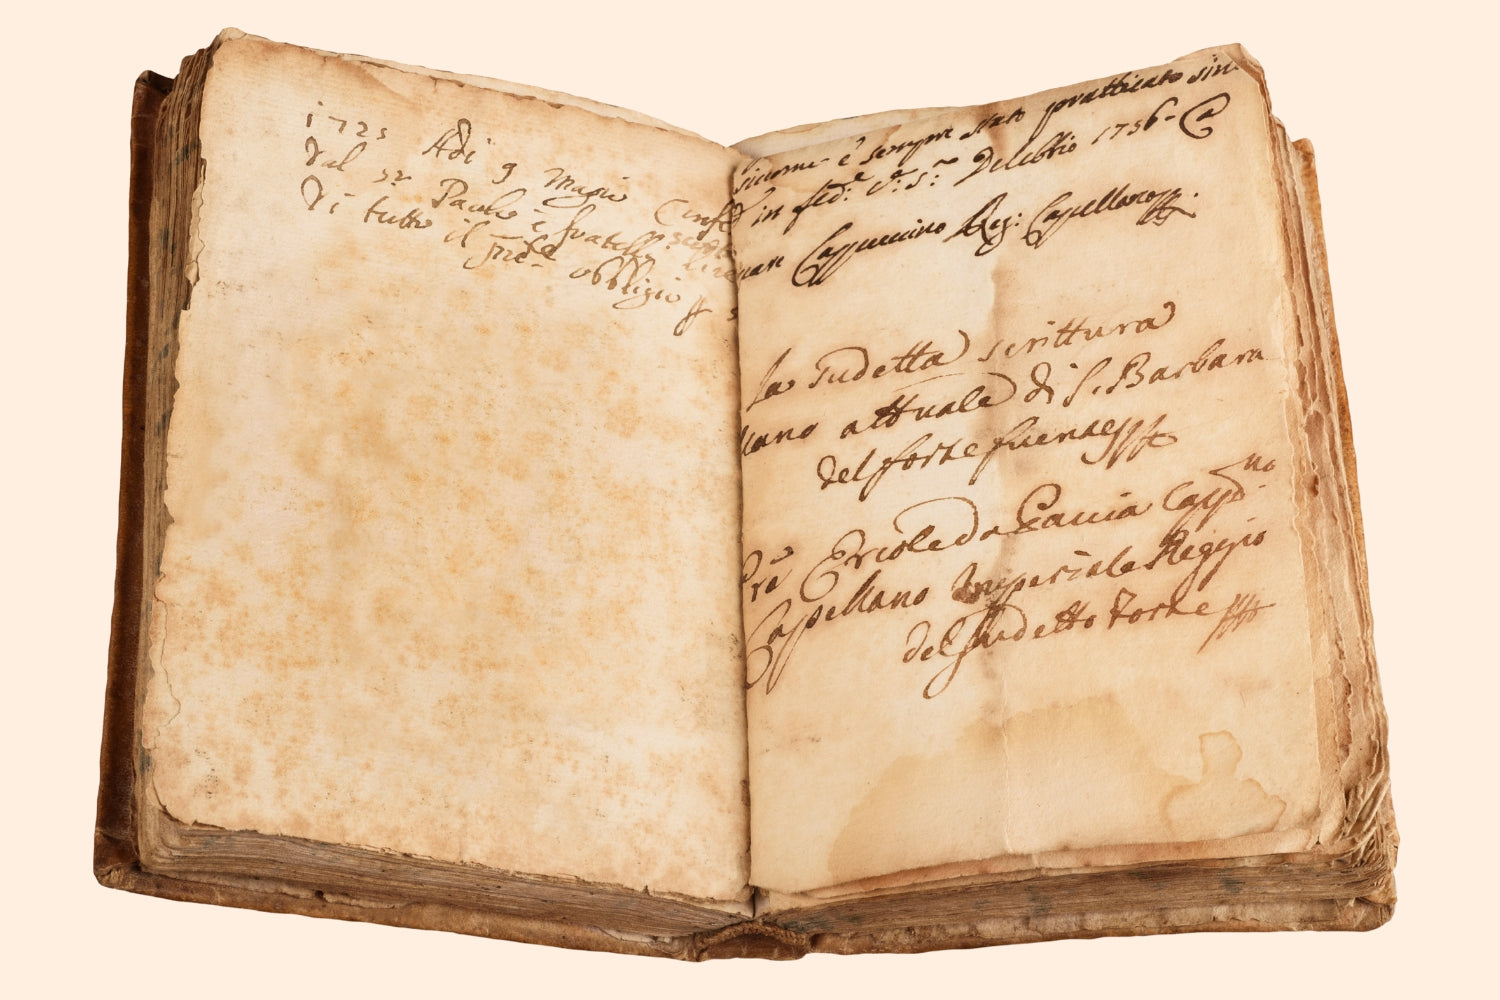 1725 Adi 9 Magio
Dal sr Paulo e fratelli
Di tutto il obbligio
sicome è sempre stato pratticato sin
in fed:e Delebrio 1756.
Cappuccino Reg: Capellano
la sudetta scrittura
attuale di S. Barbara
del forte fuentes
Fra Ercole da Pavia Capp:no
Capellano Imperiale Reggio
del sudetto Forte